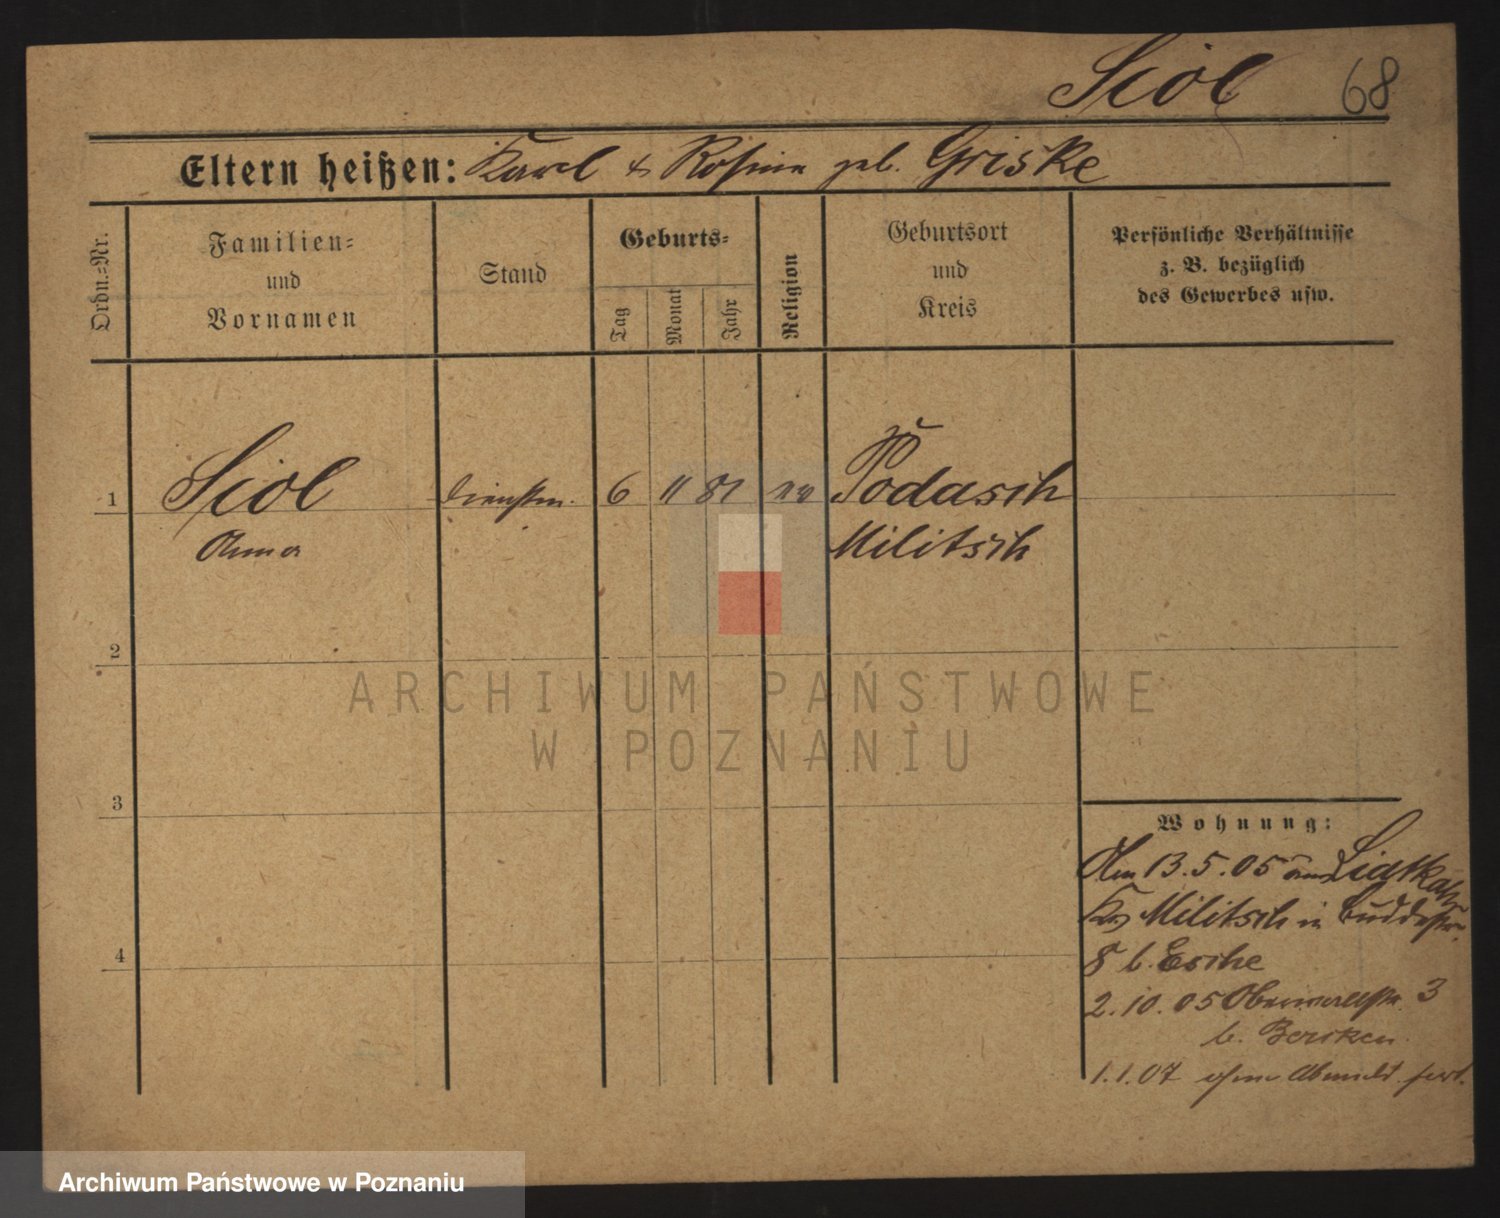 Sciol 68
Eltern heißen: Karl & Rosina geb. Griske
Ordn.=Nr.
Familien=
und
Vornamen
Stand
Geburts=
Tag
Monat
Jahr
Religion
Geburtsort
und
Kreis
Persönliche Verhältnisse
z. B. bezüglich
des Gewerbes usw.
1 Sciol 6 11 81 ev
Anna Militsch
2
3
4
Wohnung:
Am 13.5.05 aus
Militsch in
8 b. Esche
2.10.05 Oberwallstr. 3
b.
1.1.07 ohne Abmeld. fort.
ARCHIWUM PAŃSTWOWE
W POZNANIU
Archiwum Państwowe w Poznaniu